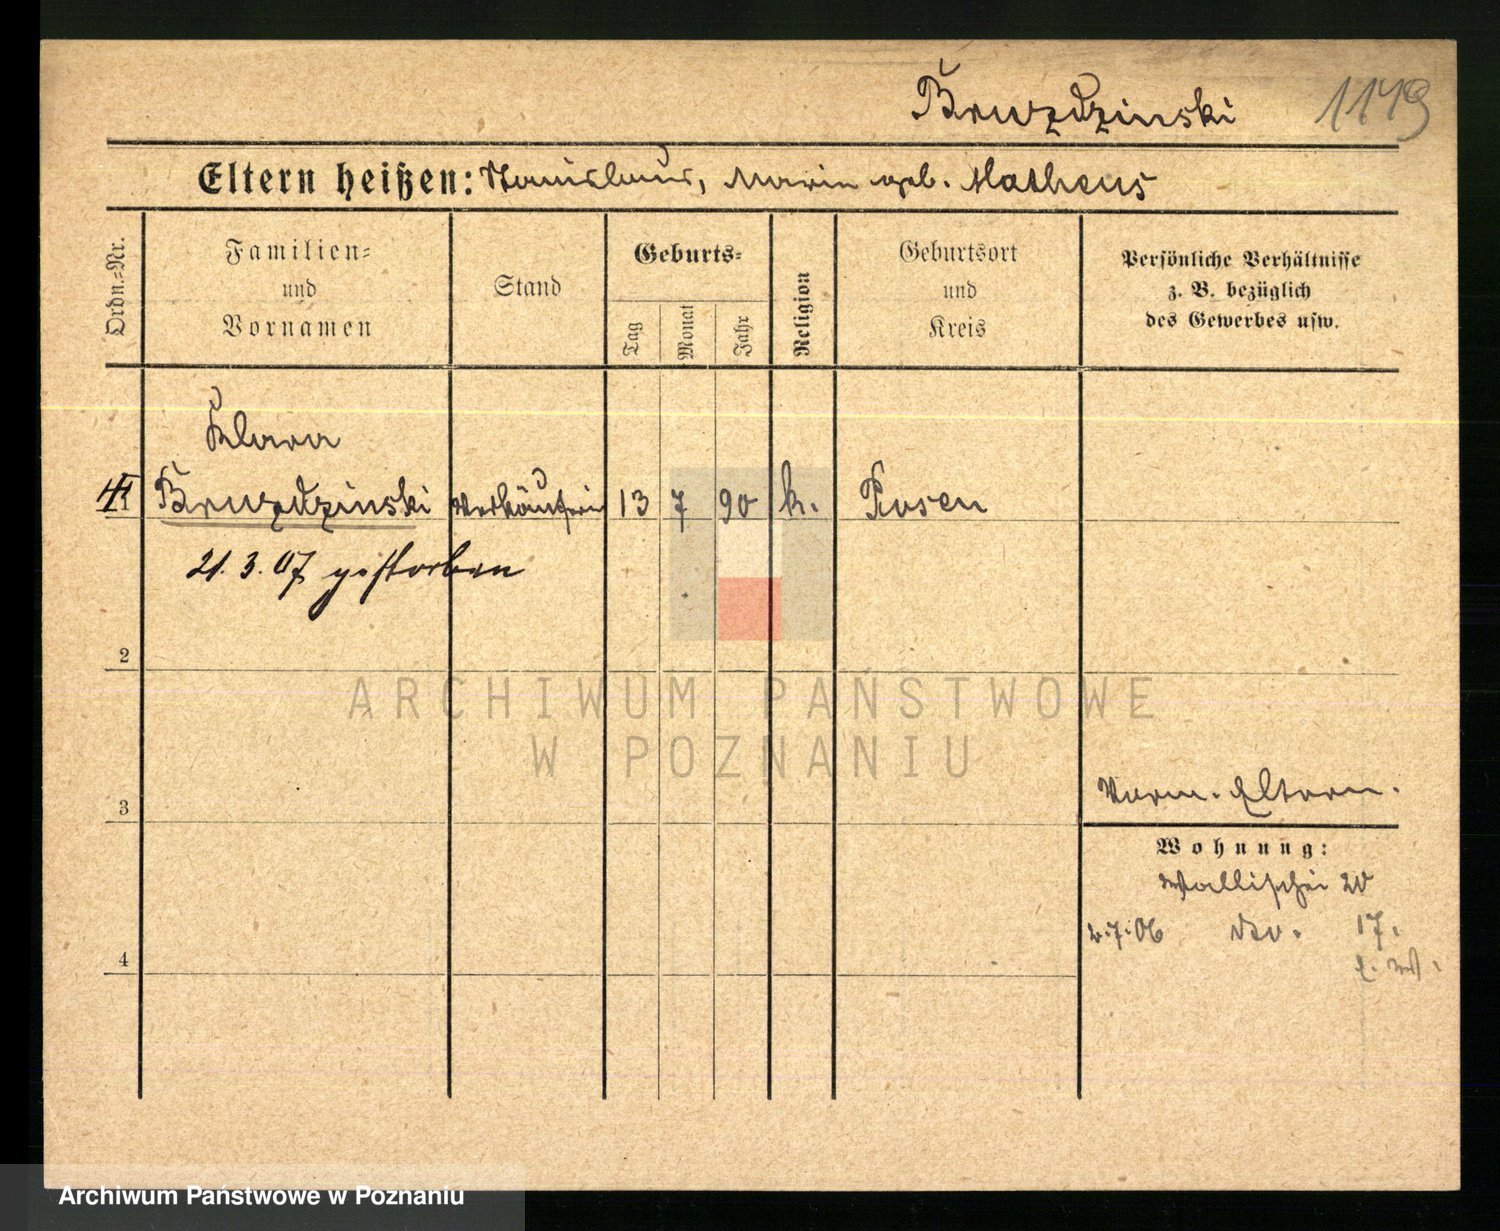 Bruzdzinski 1149
Eltern heißen: Stanislaus, Maria geb. Matheus
Ordn.-Nr.
Familien-
und
Vornamen
Stand
Geburts-
Tag
Monat
Jahr
Religion
Geburtsort
und
Kreis
Persönliche Verhältnisse
z. B. bezüglich
des Gewerbes usw.
Klara
Bruzdzinski Verkäuferin 13 7 90 k. Posen
21.3.07 gestorben
2
3
4
Eltern.
Wohnung:
Wallischei 20
2.7.06 17.
ARCHIWUM PAŃSTWOWE
W POZNANIU
Archiwum Państwowe w Poznaniu